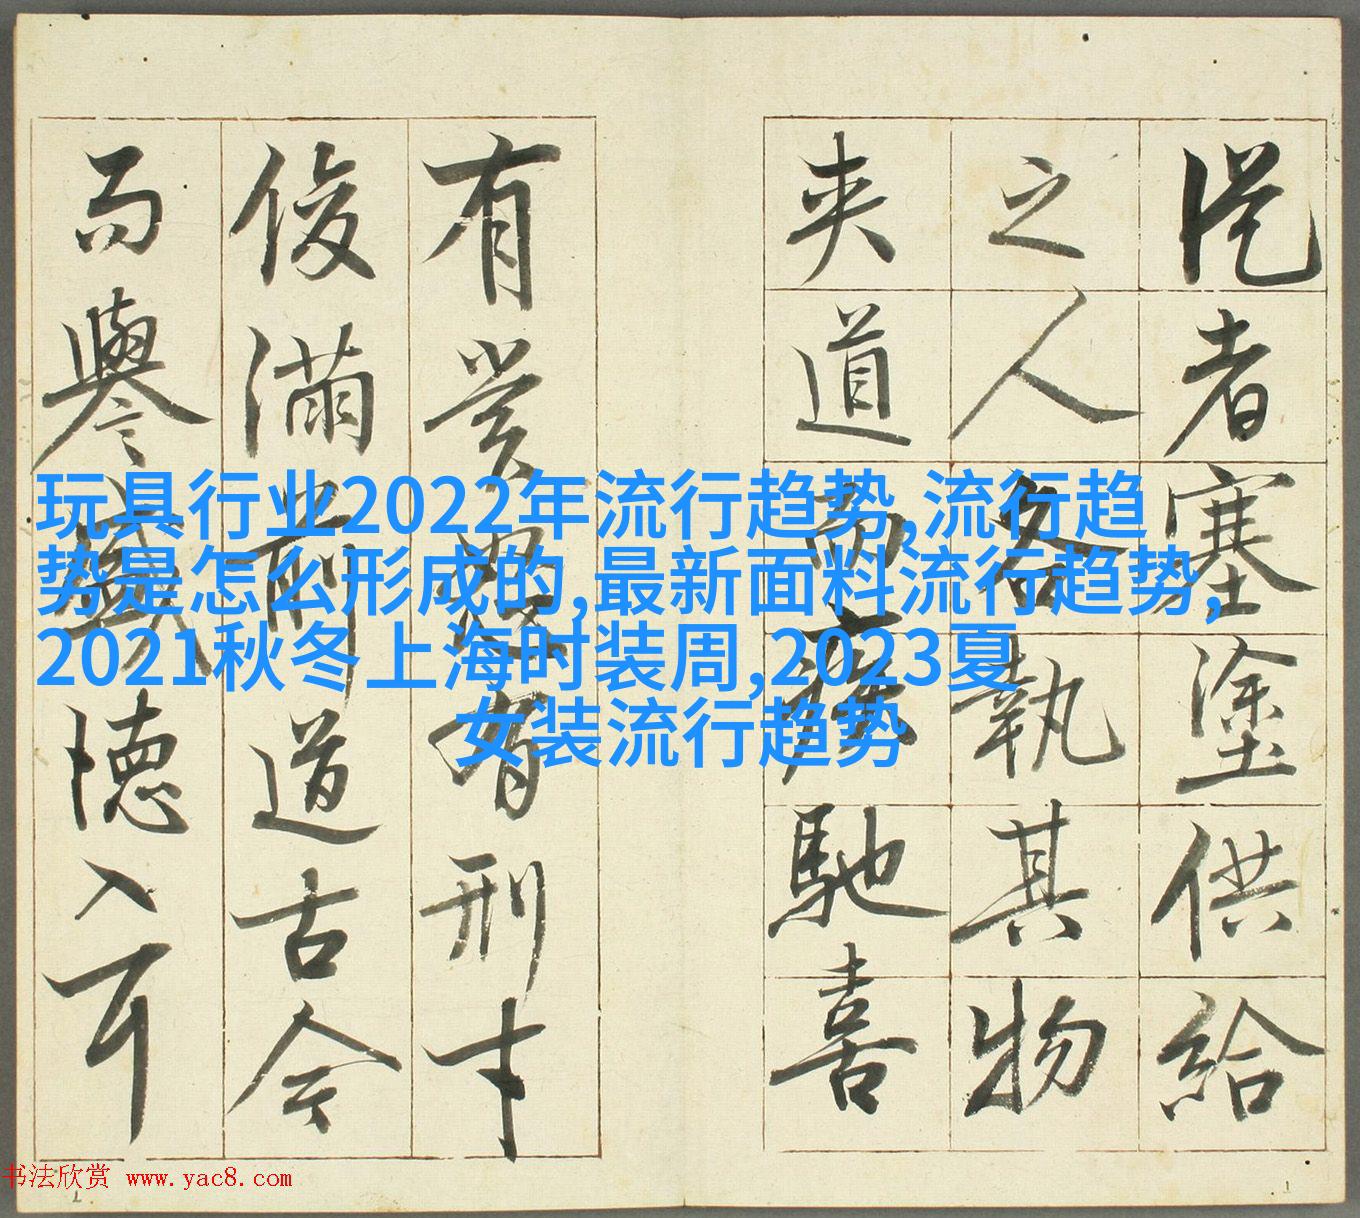 從者塞塗供給
之人各執其物
夾道而疾馳喜
有賞怒有刑才
俊滿前道古今
而譽盛德入耳
玩具行业2022年流行趋势,流行趋
势是怎么形成的,最新面料流行趋势,
2021秋冬上海时装周,2023夏
女装流行趋势
书法欣赏 www.yac8.com